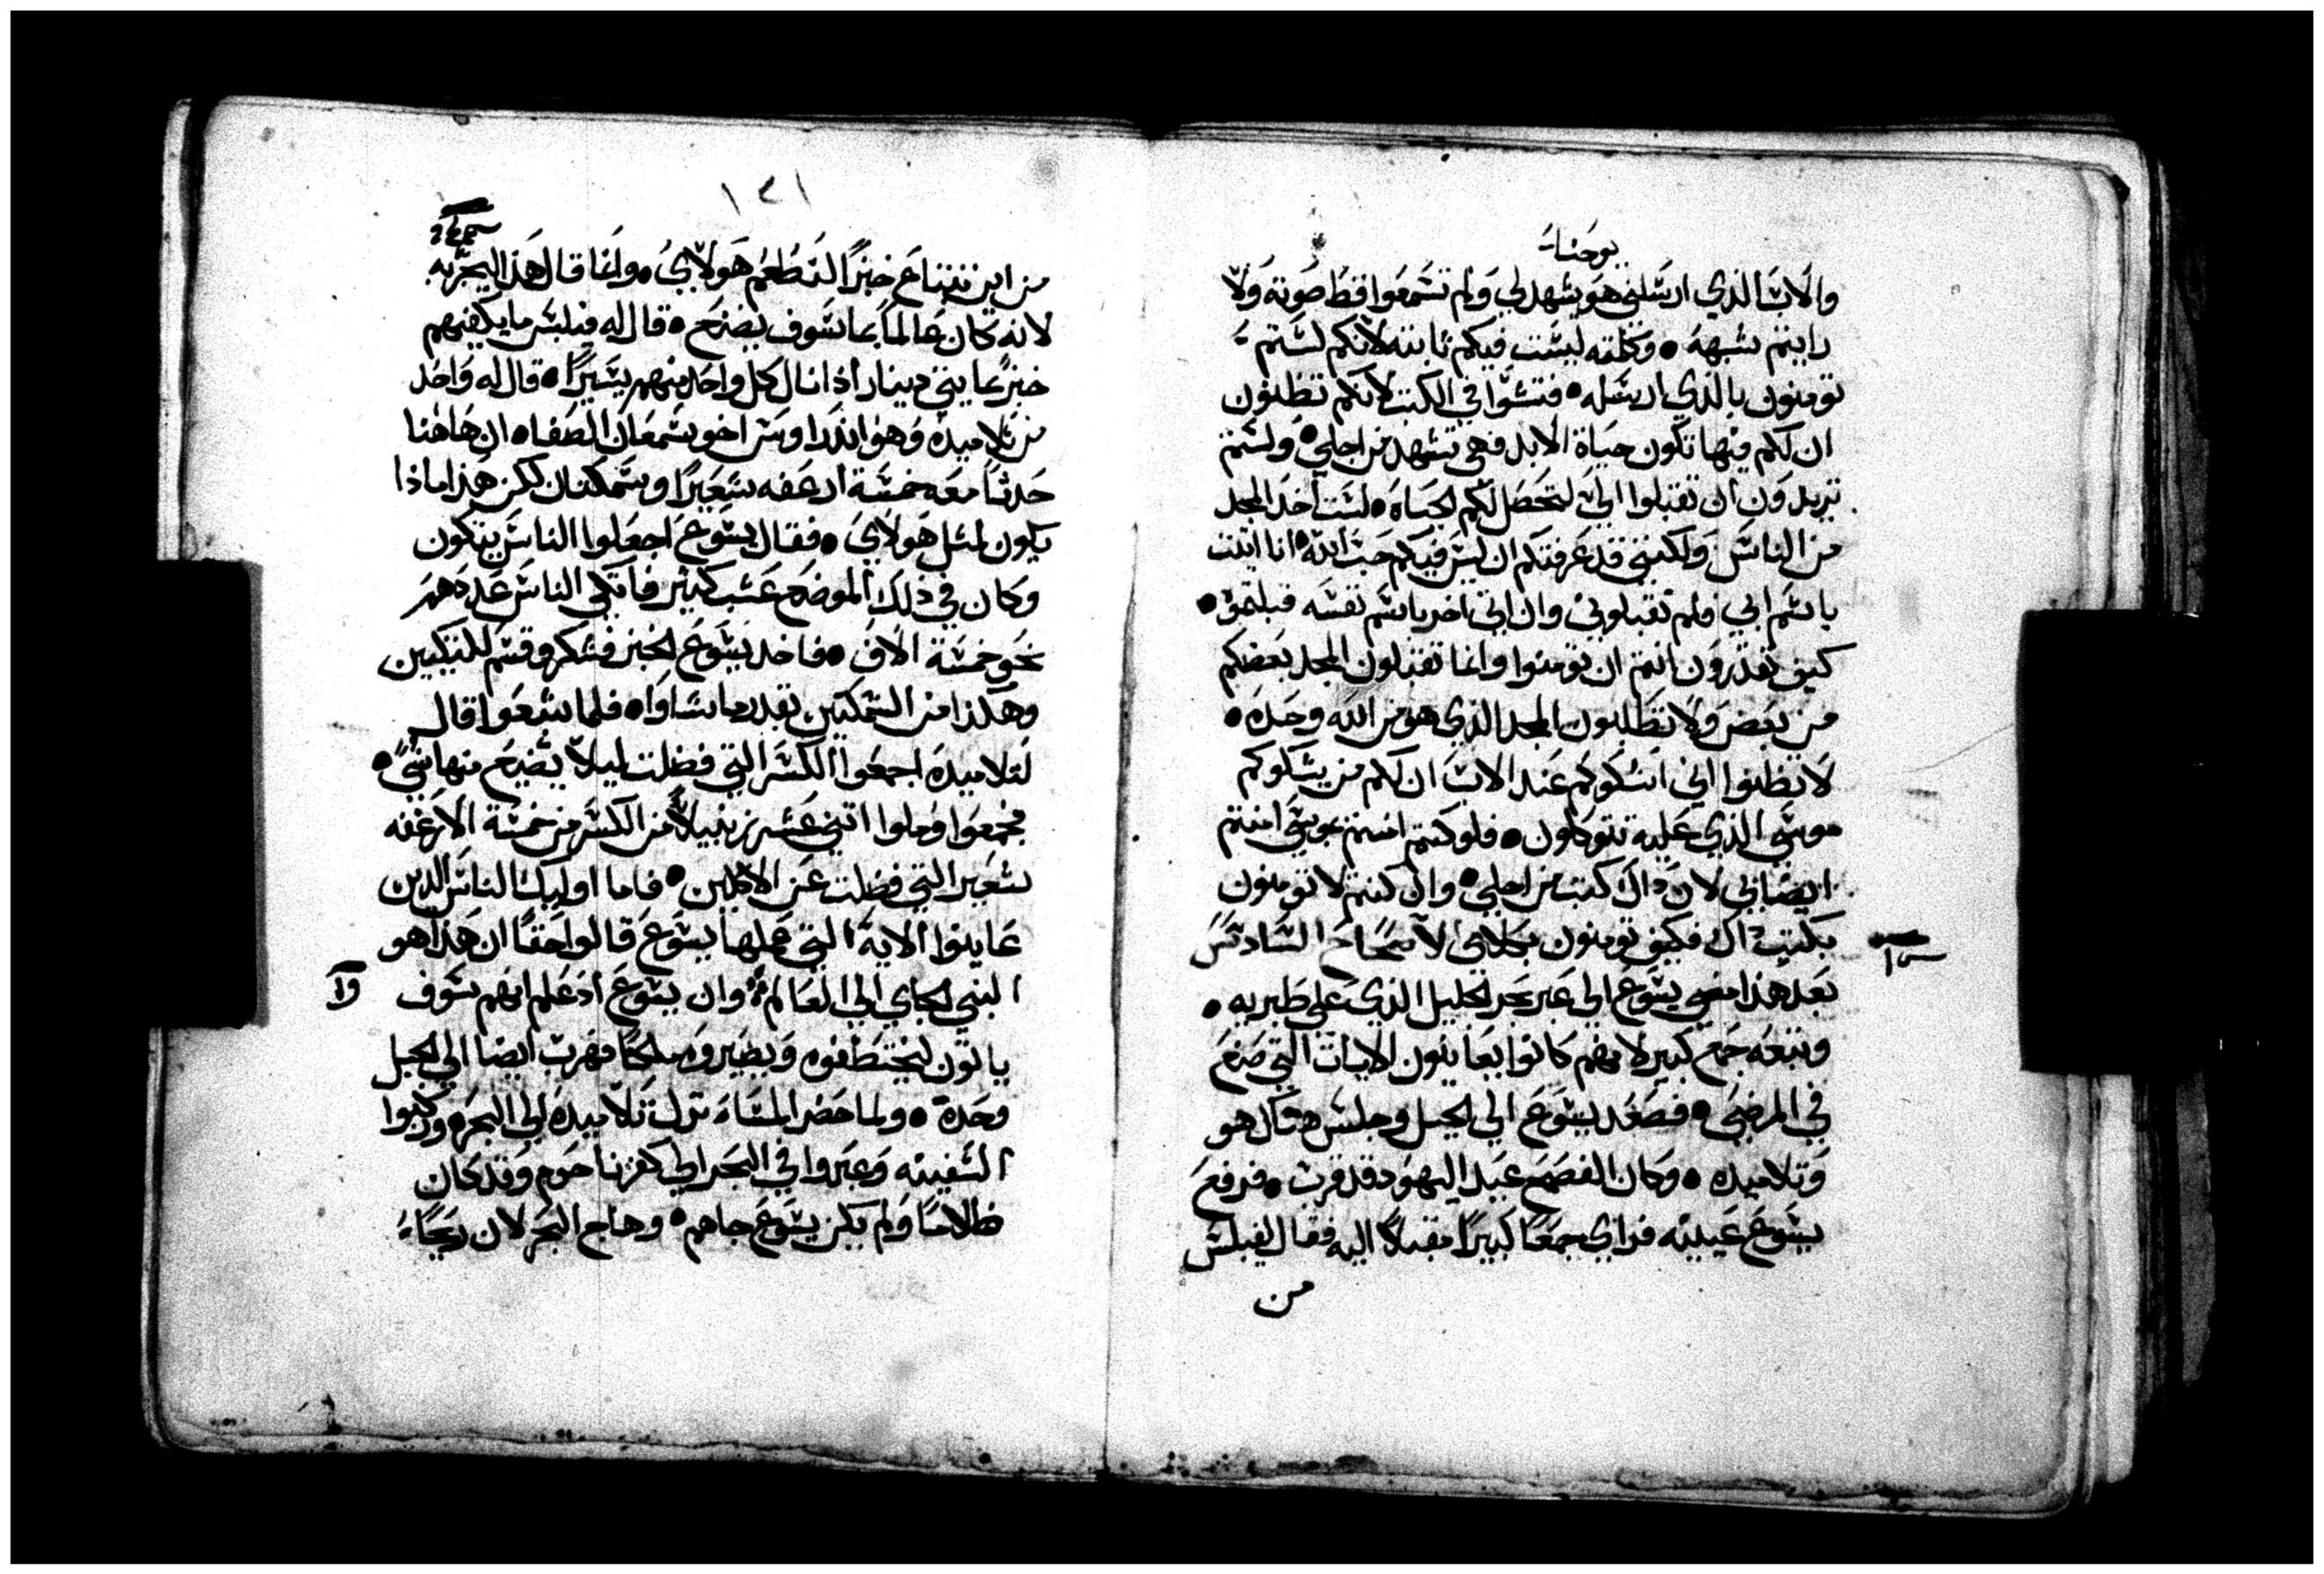 يوحنا
والاب الذي ارسلني هو يشهد لي ولم تسمعوا قط صوته ولا
رايتم شبهه • وكلمته ليست فيكم ثابته لانكم لستم
تومنون بالذي ارسله • فتشوا في الكتب لانكم تظنون
ان لكم فيها تكون حياة الابد فهي تشهد من اجلي • ولستم
تريدون ان تقبلوا الي لتحصل لكم الحياه • لست اخذ المجد
من الناس ولكنني قد عرفتكم ان ليس فيكم حب الله • انا اتيت
باسم ابي فلم تقبلوني وان اتي اخر باسم نفسه قبلتموه •
كيف تقدرون انتم ان تومنوا وانما تقبلون المجد بعضكم
من بعض ولا تطلبون المجد الذي هو من الله وحده •
لا تظنوا اني اشكوكم عند الاب ان لكم من يشكوكم
موسي الذي عليه تتوكلون • فلو كنتم امنتم بموسي امنتم
ايضا بي لان ذاك كتب من اجلي • وان كنتم لا تومنون
بكتب ذاك فكيف تومنون بكلامي الاصحاح السادس
بعد هذا مضي يشوع الي عبر بحر الجليل الذي علي طبريه •
وتبعه جمع كبير لانهم كانوا يعاينون الايات التي صنع
في المرضي • فصعد يشوع الي الجبل وجلس هناك هو
وتلاميده • وكان الفصح عيد اليهود قد قرب • فرفع
يشوع عينيه فراي جمعا كبيرا مقبلا اليه فقال لفيلبس
من
١٢١
من اين نبتاع خبزا لنطعم هولاي • وانما قال هذا ليجربه
لانه كان عالما بما سوف يصنع • قال له فيلبس ما يكفيهم
خبز بمايتي دينار اذا نال كل واحد منهم يسيرا • قال له واحد
من تلاميده وهو اندراوس اخو سمعان الصفا • ان هاهنا
حدثا معه خمسة ارغفه شعيرا وسمكتان لكن هذا ماذا
يكون لمثل هولاي • فقال يشوع اجعلوا الناس يتكون
وكان في ذلك الموضع عشب كثير فاتكي الناس عددهم
نحو خمسة الاف • فاخد يشوع الخبز فشكر وقسم للمتكيين
وهكذا من السمكتين بقدر ما شاوا • فلما شبعوا قال
لتلاميده اجمعوا الكسر التي فضلت ليلا يضيع منها شي •
فجمعوا وملوا اتني عشر زنبيلا من الكسر من خمسة الارغفه
شعير التي فضلت عن الاكلين • فاما اوليك الناس الدين
عاينوا الاية التي عملها يشوع قالوا حقا ان هذا هو
النبي الجاي الي العالم وان يشوع اذ علم انهم سوف
ياتون ليختطفوه ويصيروه ملكا فهرب ايضا الي الجبل
وحده • ولما حضر المسا نزل تلاميده الي البحر وركبوا
السفينه وعبروا في البحر الي كفرناحوم وقد كان
ظلاما ولم يكن يشوع جاهم • وهاج البحر لان ريحا